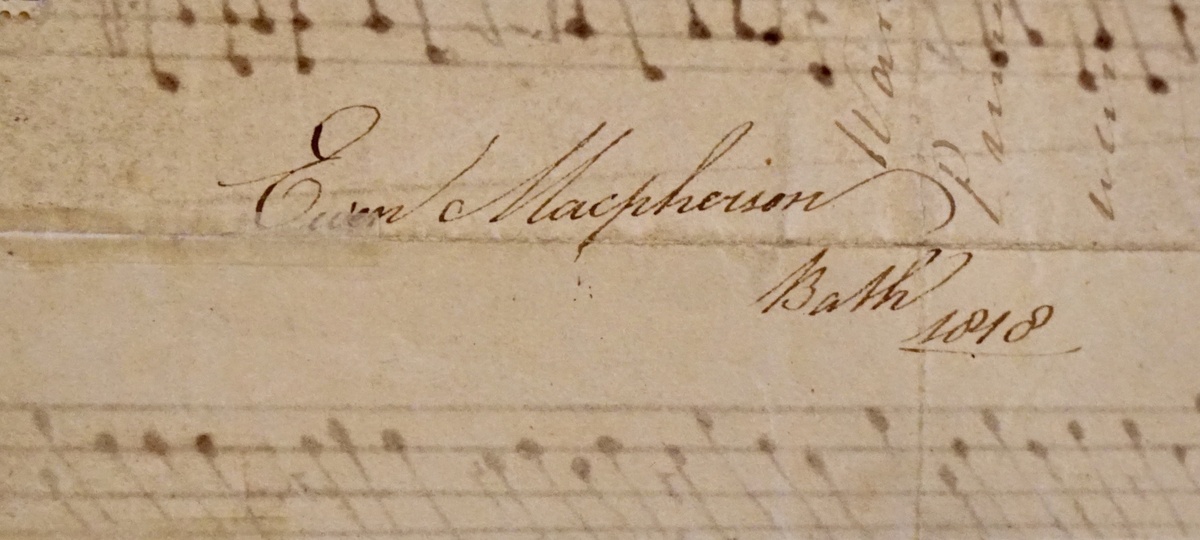 Ewen Macpherson
Bath
1818